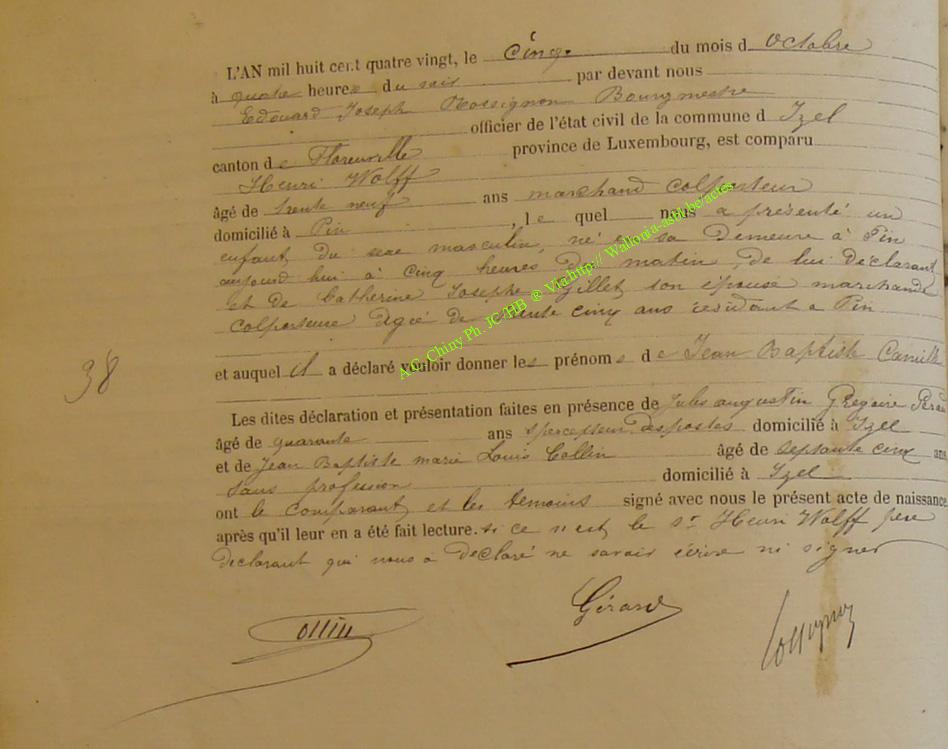 L'AN mil huit cent quatre vingt, le cinq du mois d octobre
à quatre heures du soir par devant nous
Edouard Joseph Rossignon Bourgmestre
officier de l'état civil de la commune d Izel
canton de Florenville province de Luxembourg, est comparu
Henri Wolff
âgé de trente neuf ans marchand colporteur
domicilié à Pin, le quel nous a présenté un
enfant du sexe masculin, né en sa Demeure à Pin
aujourd hui à cinq heures du matin, de lui Déclarant
et de Catherine Josephe Gillet son épouse marchande
colporteuse âgée de trente cinq ans résidant a Pin
et auquel il a déclaré vouloir donner les prénoms de Jean Baptiste Camille
38
Les dites déclaration et présentation faites en présence de Jules augustin Grégoire
âgé de quarante ans percepteur Des postes domicilié à Izel
et de Jean Baptiste marie Louis Collin âgé de septante cinq ans
sans profession domicilié à Izel
ont le comparant et les témoins signé avec nous le présent acte de naissance
après qu'il leur en a été fait lecture. si ce n est le sr Henri Wolff père
Déclarant qui nous a Déclaré ne savoir écrire ni signer
Collin Gérard Rossignon
A.C. Chiny Ph. JC-HB @ Via http:// Wallonia-asbl.be/actes